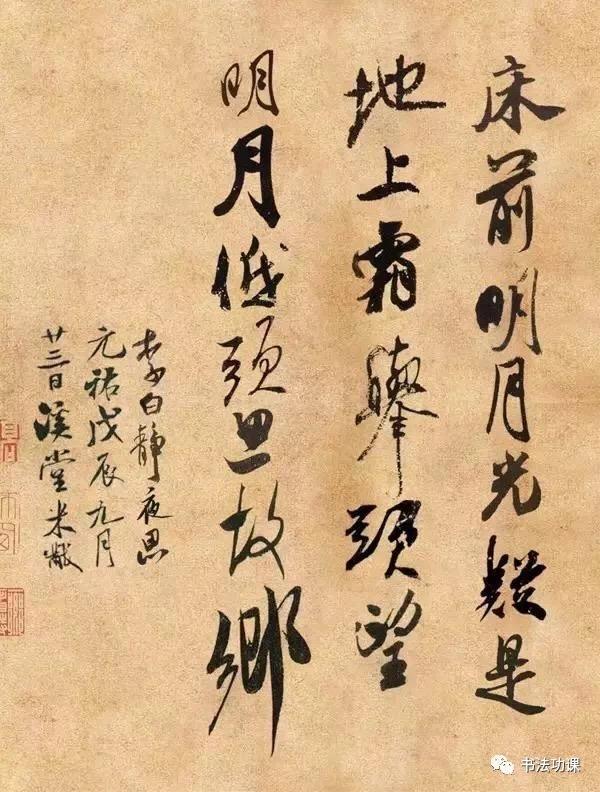 床前明月光疑是
地上霜舉頭望
明月低頭思故鄉
李白靜夜思
元祐戊辰九月
廿三日溪堂米黻
书法功课